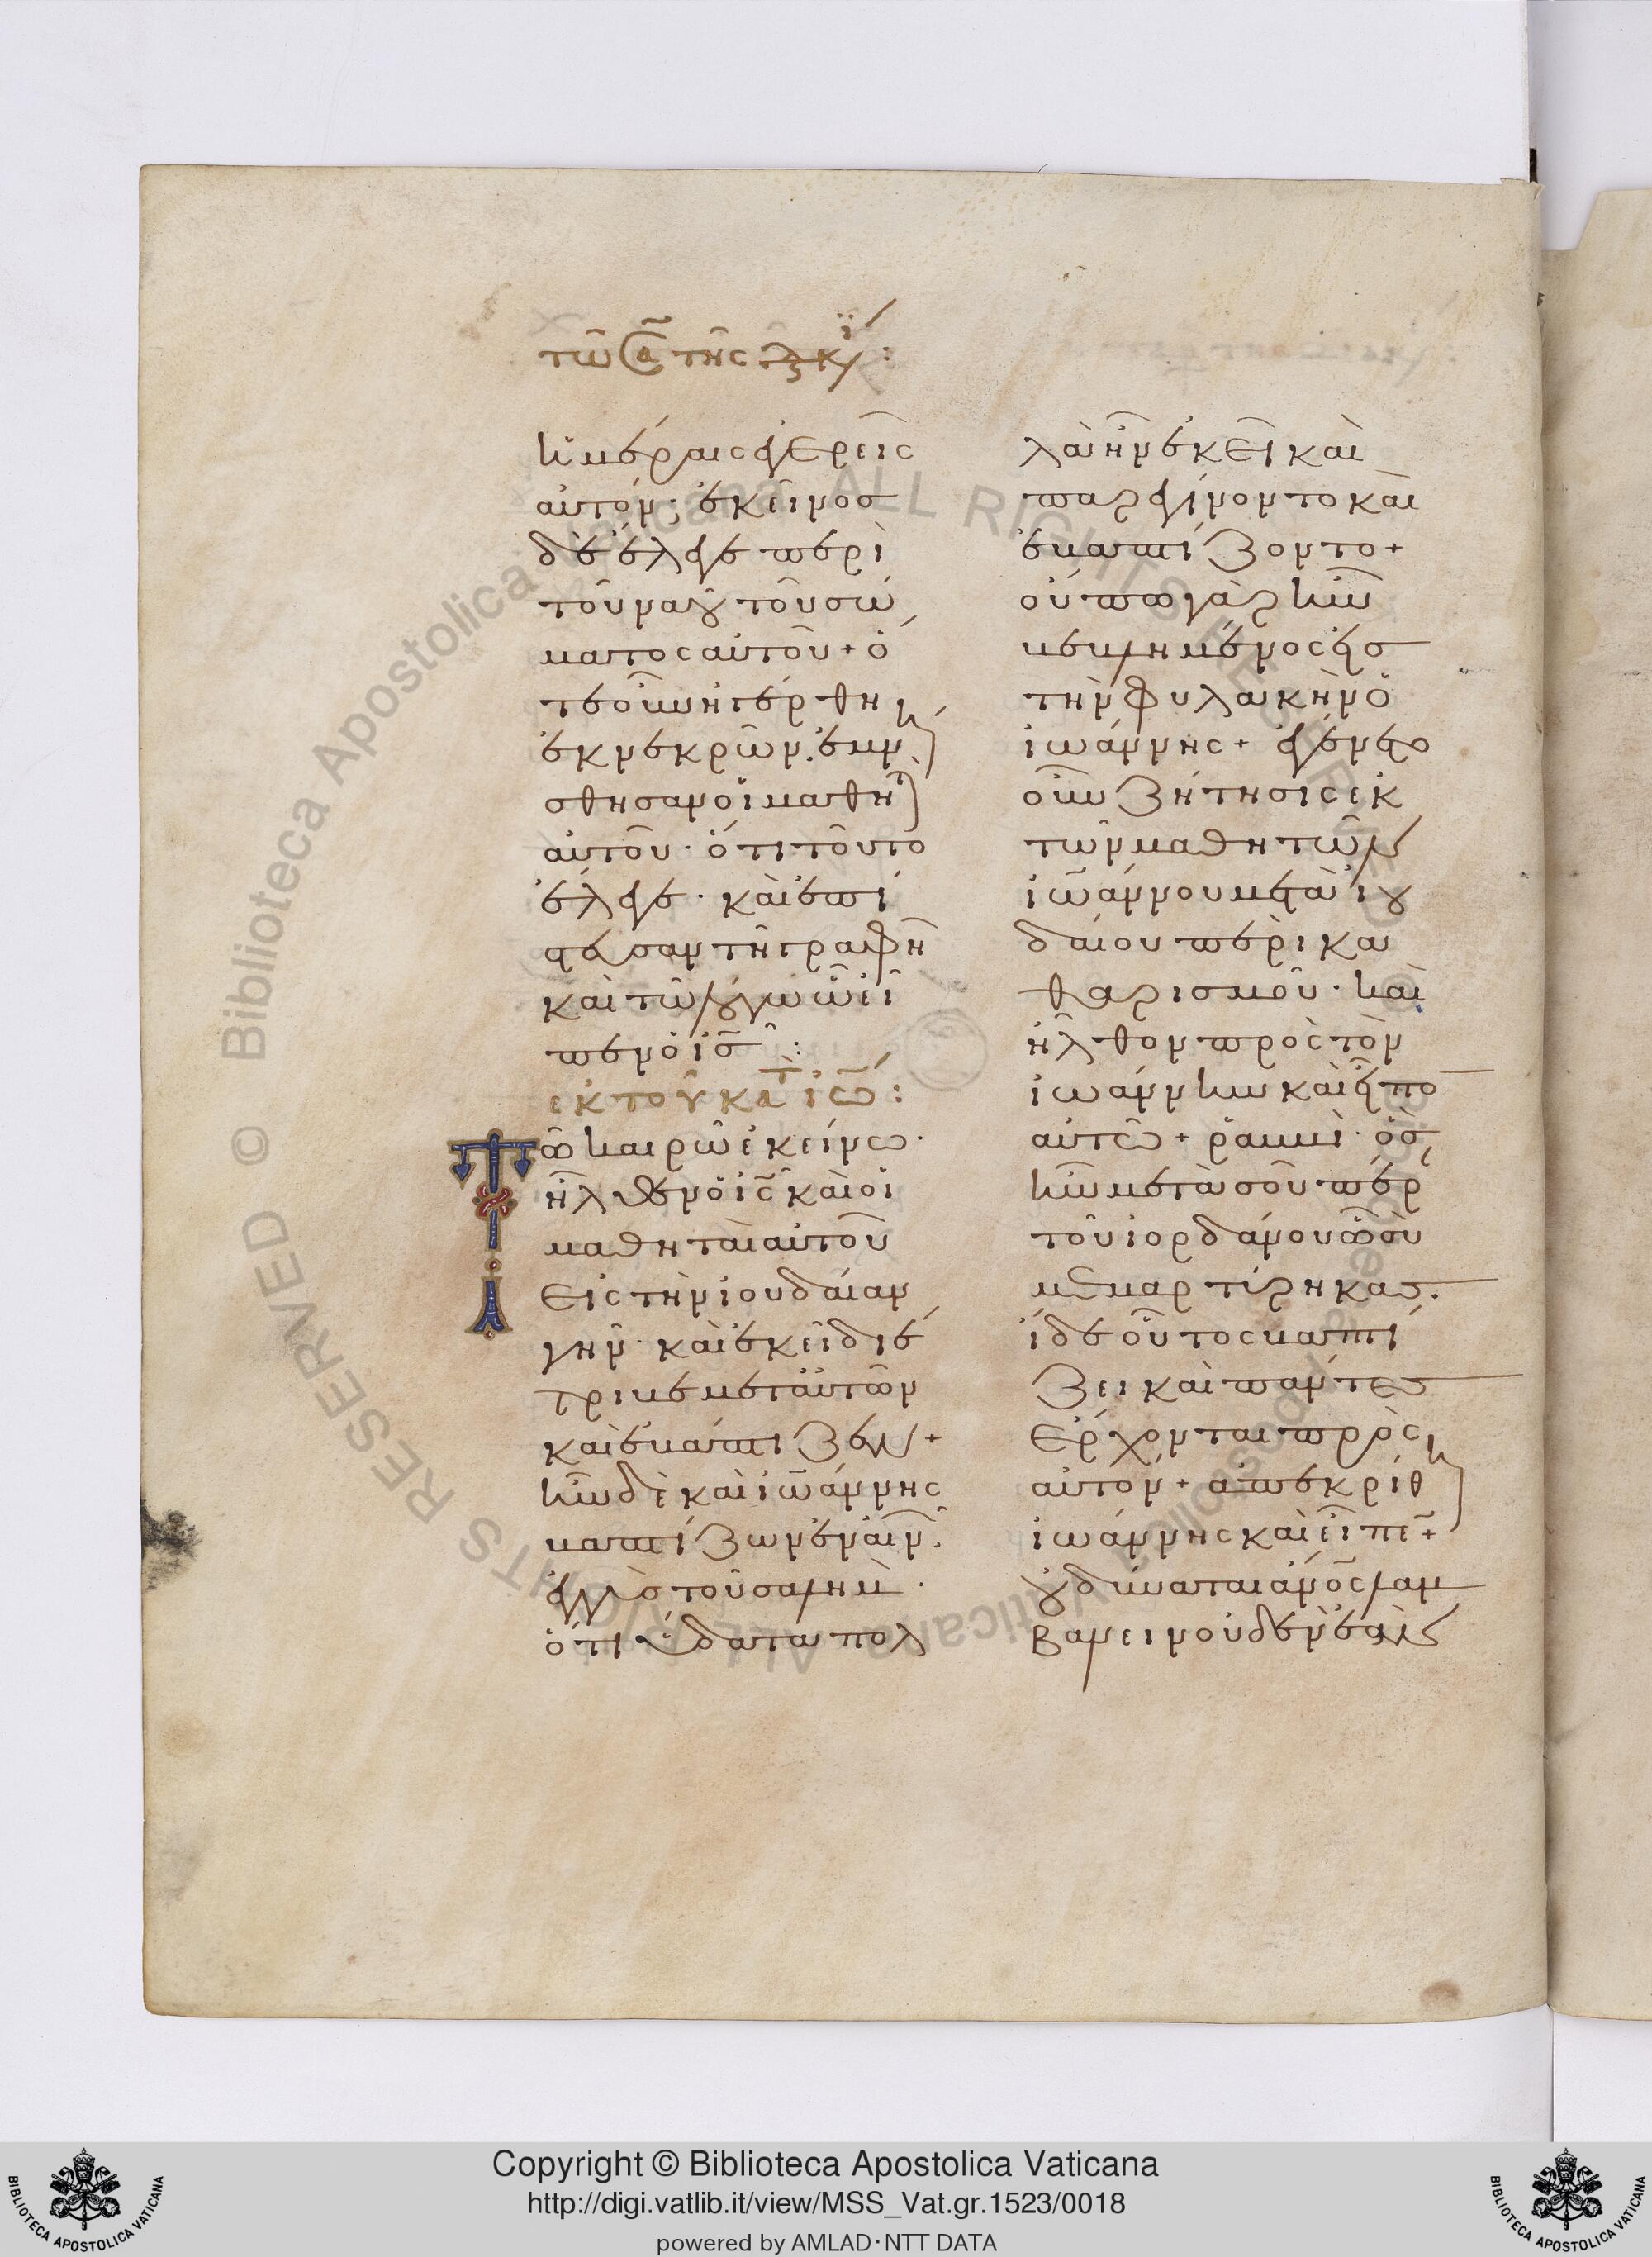 τῶ Σα τῆς διακι :
ἡμέραις ἐγερεῖς
αὐτόν; ἐκεῖνος
δὲ ἔλεγε περὶ
τοῦ ναοῦ τοῦ σώ
ματος αὐτοῦ + ὅ
τε οὖν ἠγέρθη
ἐκ νεκρῶν. ἐμνή
σθησαν οἱ μαθητ
αὐτοῦ · ὅτι τοῦτο
ἔλεγε · καὶ ἐπί
στευσαν τῆ γραφῆ
καὶ τῶ λόγω ὧ εἶ
πεν ὁ ις :
ἐκ τοῦ κατ ιω :
Τῶ καιρῶ ἐκείνω ·
ἦλθεν ὁ ις καὶ οἱ
μαθηταὶ αὐτοῦ
εἰς τὴν ἰουδαίαν
γῆν · καὶ ἐκεῖ διέ
τριβε μετ αὐτῶν
καὶ ἐβάπτιζεν +
ἦν δὲ καὶ ἰωάννης
βαπτίζων ἐν αἰνὼν
ἐγγὺς τοῦ σαλήμ ·
ὅτι ὕδατα πολ
λὰ ἦν ἐκεῖ καὶ
παρεγίνοντο καὶ
ἐβαπτίζοντο +
οὔπω γὰρ ἦν
βεβλημένος εἰς
τὴν φυλακὴν ὁ
ἰωάννης + ἐγένετο
οὖν ζήτησις ἐκ
τῶν μαθητῶν
ἰωάννου μετὰ ἰου
δαίου περὶ κα
θαρισμοῦ · καὶ
ἦλθον πρὸς τὸν
ἰωάννην καὶ εἶπον
αὐτῶ + ῥαββί · ὃς
ἦν μετὰ σοῦ πέρ
τοῦ ἰορδάνου ὧ σὺ
μεμαρτύρηκας.
ἴδε οὗτος βαπτί
ζει καὶ πάντες
ἔρχονται πρὸς
αὐτόν + ἀπεκρίθη
ἰωάννης καὶ εἶπεν +
οὐ δύναται ἄνος λαμ
βάνειν οὐδὲν ἐὰν
Copyright © Biblioteca Apostolica Vaticana
http://digi.vatlib.it/view/MSS_Vat.gr.1523/0018
powered by AMLAD·NTT DATA